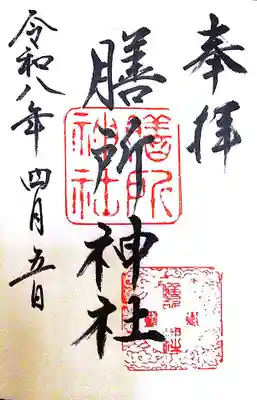 奉拝
膳所神社
令和八年 四月五日
膳所
神社